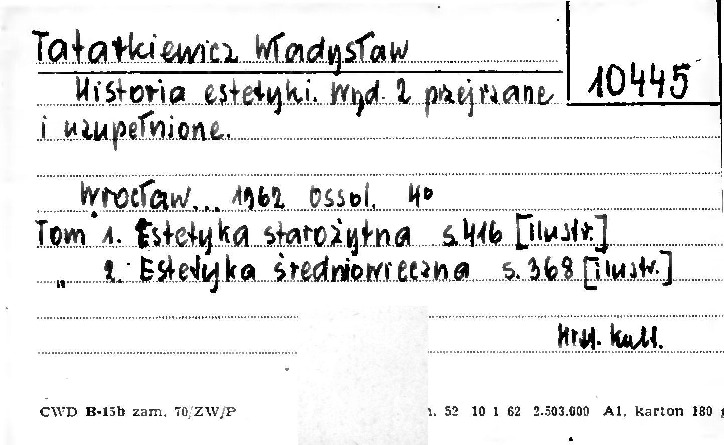 Tatarkiewicz Władysław
10445
Historia estetyki. Wyd. 2 przejrzane
i uzupełnione.
Wrocław... 1962 Ossol. 4º
Tom 1. Estetyka starożytna s. 416 [ilustr.]
„ 2. Estetyka średniowieczna s. 368 [ilustr.]
Hist. kult.
CWD B-15b zam. 70/ZW/P 52 10 1 62 2.503.000 A1, karton 180